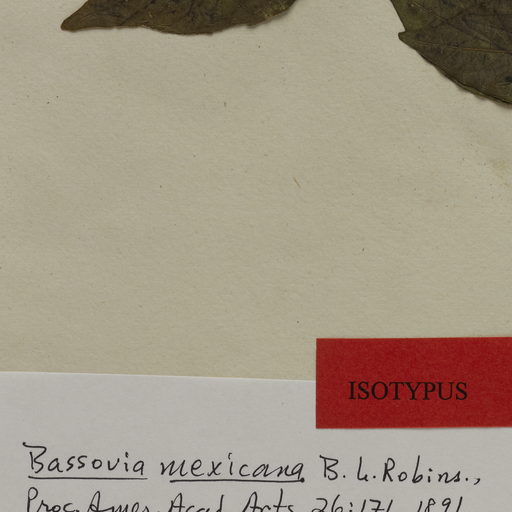 ISOTYPUS
Bassovia mexicana B. L. Robins.,
Proc. Amer. Acad. Arts 26:171. 1891